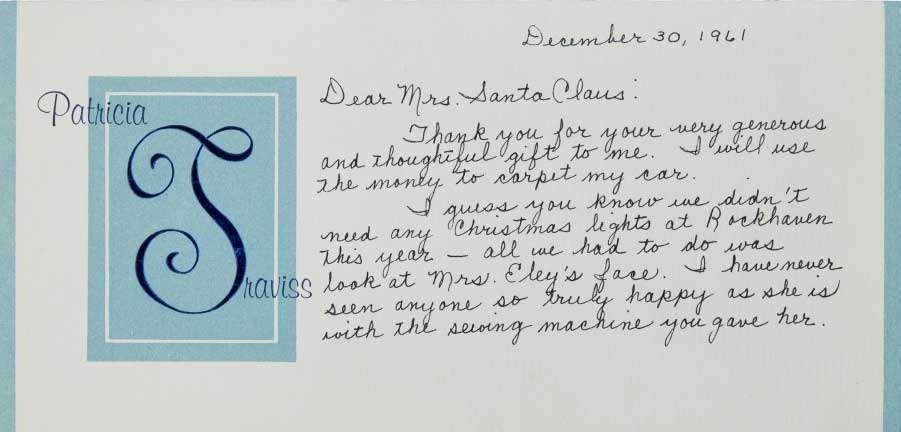 December 30, 1961
Patricia
Traviss
Dear Mrs. Santa Claus:
Thank you for your very generous
and thoughtful gift to me. I will use
the money to carpet my car.
I guess you know we didn't
need any Christmas lights at Rockhaven
this year — all we had to do was
look at Mrs. Eley's face. I have never
seen anyone so truly happy as she is
with the sewing machine you gave her.